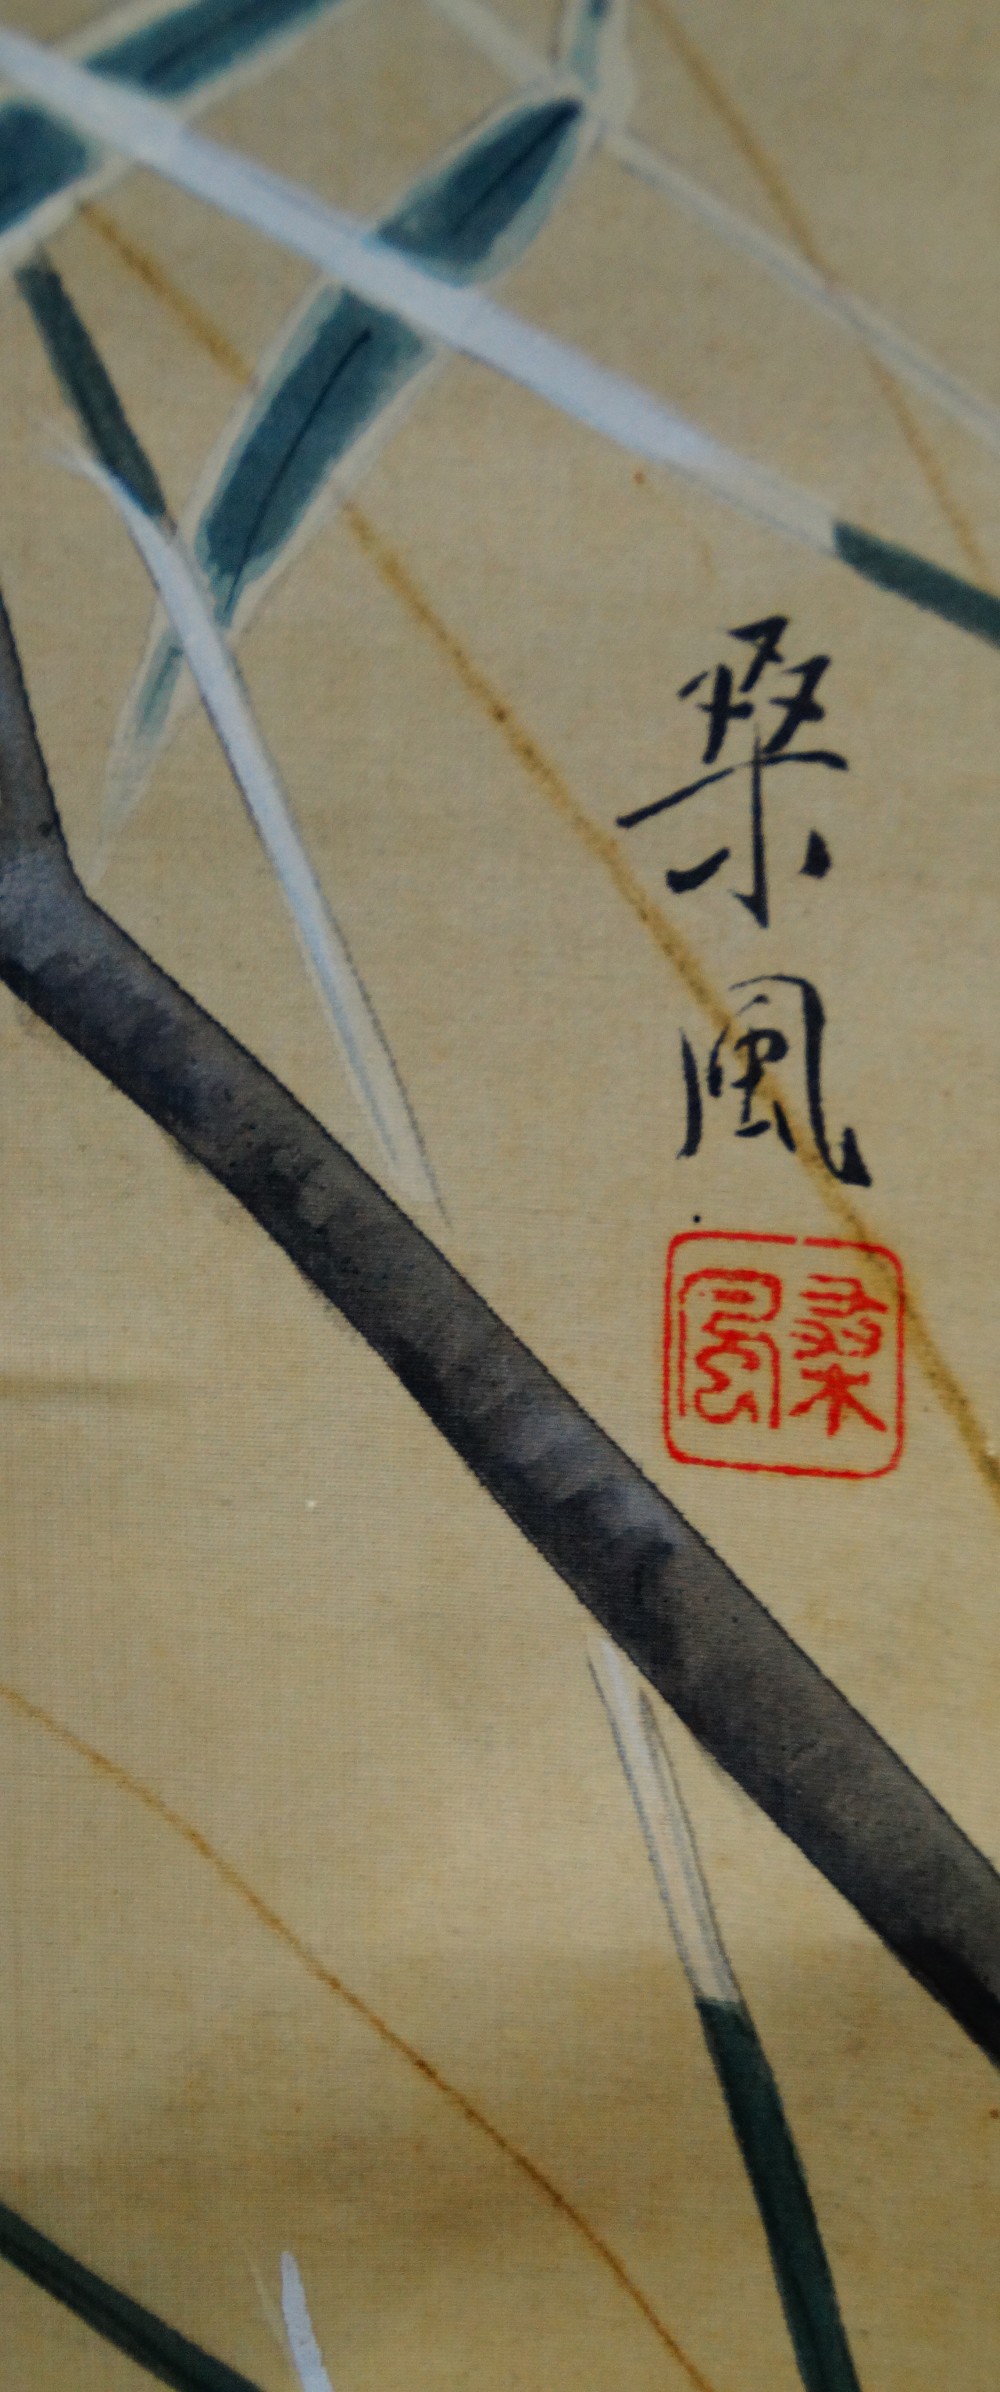 桑風
桑風